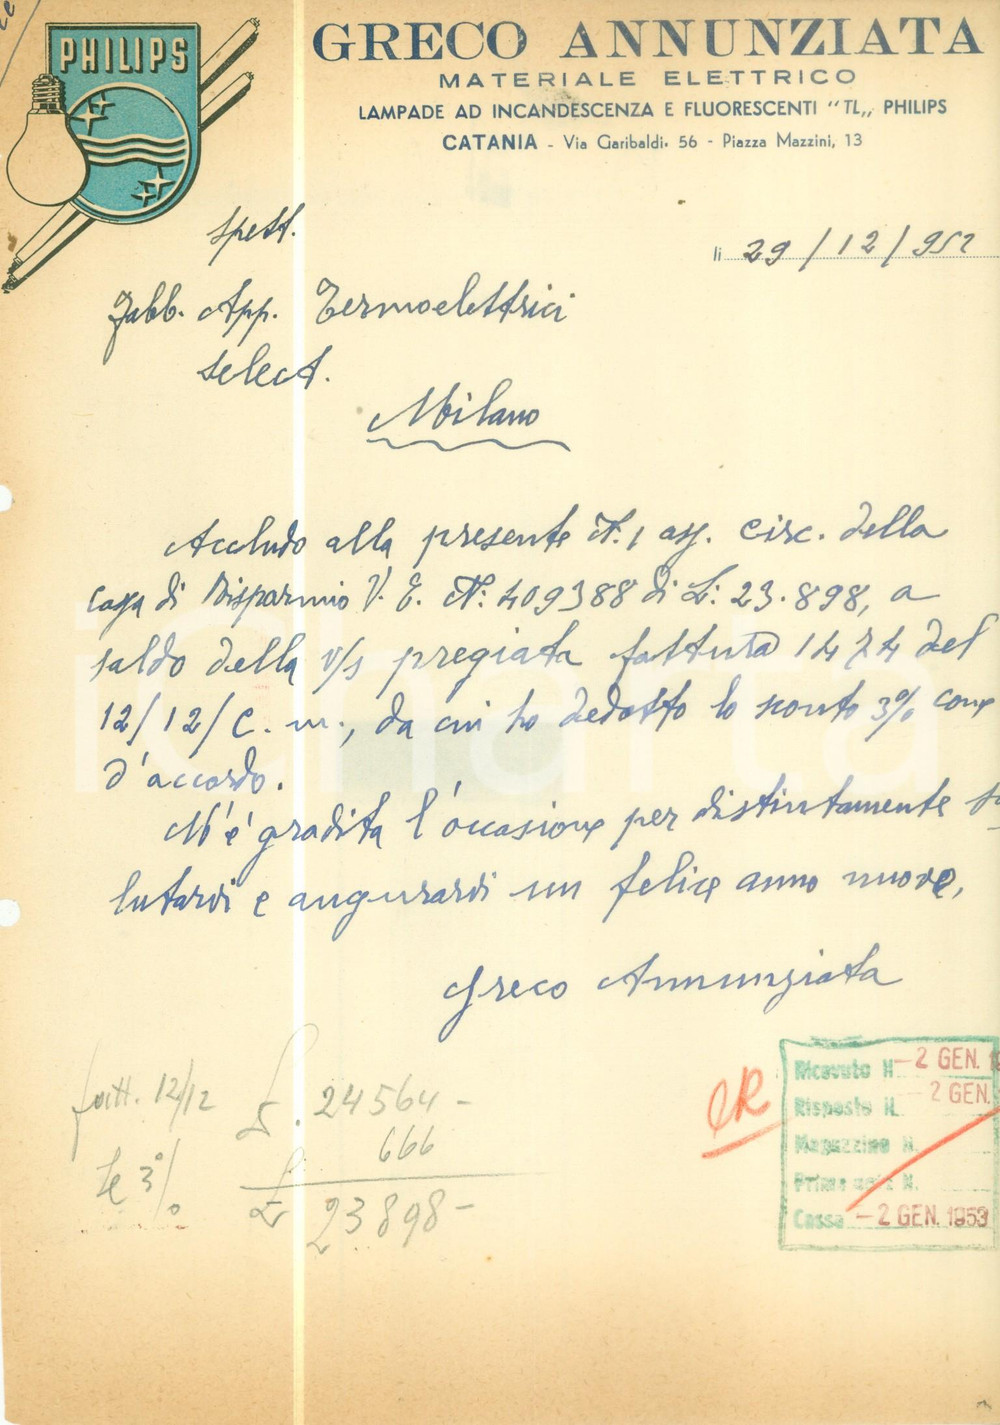 PHILIPS
GRECO ANNUNZIATA
MATERIALE ELETTRICO
LAMPADE AD INCANDESCENZA E FLUORESCENTI “TL„ PHILIPS
CATANIA - Via Garibaldi, 56 - Piazza Mazzini, 13
li 29/12/952
Spett.
Fabb. App. Termoelettrici
Select.
Milano
Accludo alla presente N. 1 ass. circ. della
Cassa di Risparmio V. E. N: 409388 di L: 23.898, a
saldo della v/s pregiata fattura 1474 del
12/12/c. m., da cui ho dedotto lo sconto 3% come
d'accordo.
M'è gradita l'occasione per distintamente sa
lutarvi e augurarvi un felice anno nuovo,
Greco Annunziata
fatt. 12/12 £. 24564-
3% 666
£ 23898-
CR
Ricevuto N. -2 GEN. 19
Risposto N. -2 GEN.
Magazzino N.
Prima N.
Cassa -2 GEN. 1953
iCharta